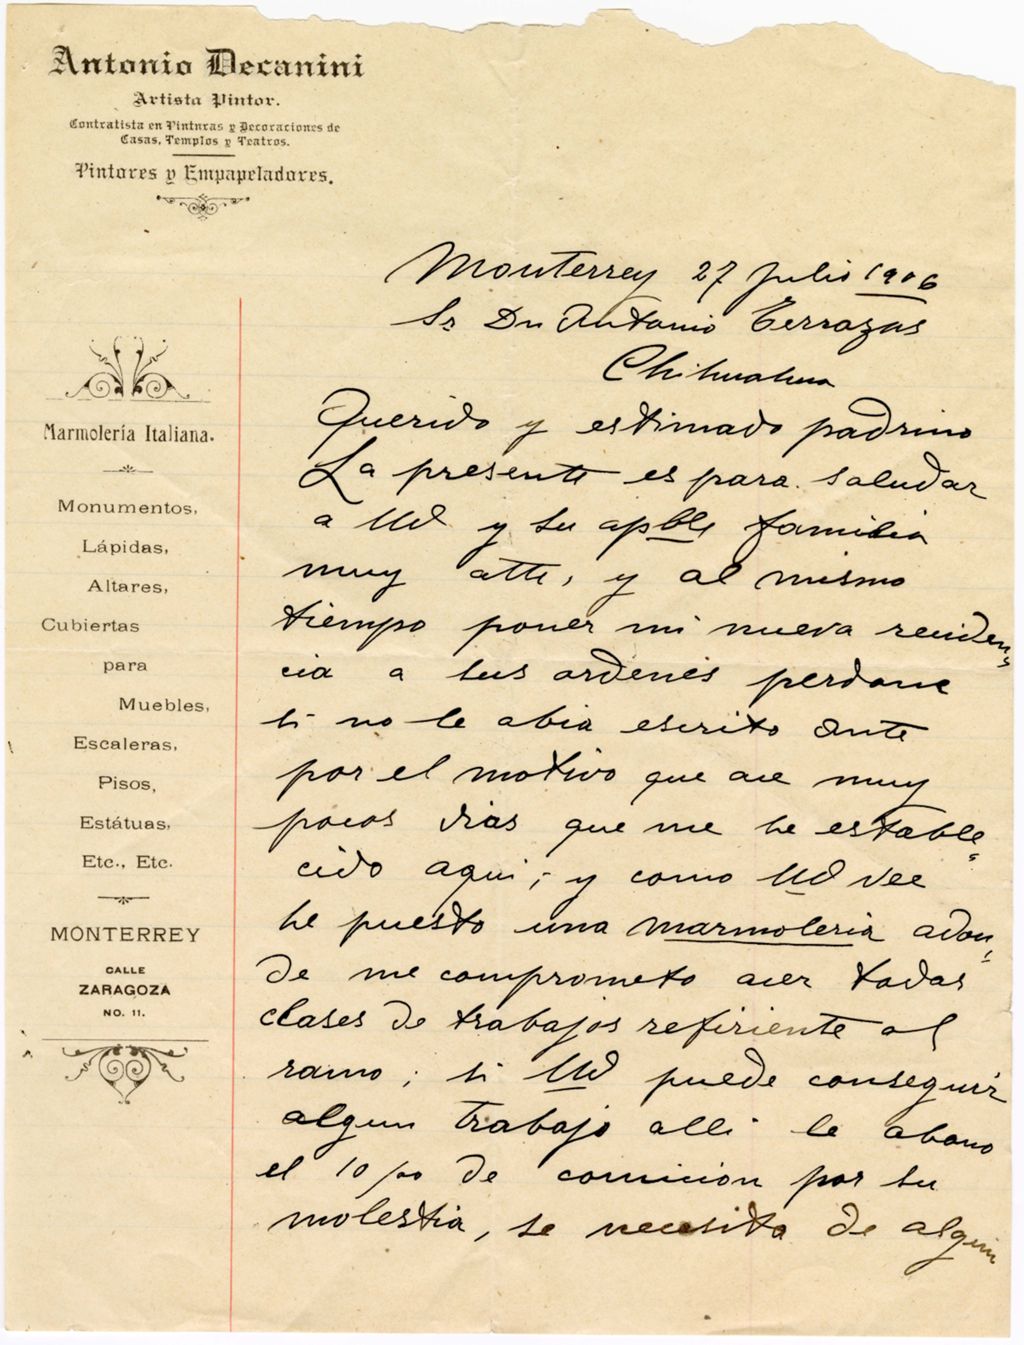 Antonio Decanini
Artista Pintor.
Contratista en Pinturas y Decoraciones de
Casas, Templos y Teatros.
Pintores y Empapeladores.
Marmolería Italiana.
Monumentos,
Lápidas,
Altares,
Cubiertas
para
Muebles,
Escaleras,
Pisos,
Estátuas,
Etc., Etc.
MONTERREY
CALLE
ZARAGOZA
NO. 11.
Monterrey 27 Julio 1906
Sr Dn Antonio Terrazas
Chihuahua
Querido y estimado padrino
La presente es para saludar
a Ud y su apble familia
muy atte, y al mismo
tiempo poner mi nueva reciden-
cia a sus ordenes perdone
si no le abia escrito ante
por el motivo que ace muy
pocos dias que me he estable-
cido aqui; y como Ud vee
he puesto una marmoleria adon-
de me comprometo acer todas
clases de trabajos refiriente al
ramo; si Ud puede conseguir
algun trabajo alli le abono
el 10 po de comicion por su
molestia, se necesita de algun